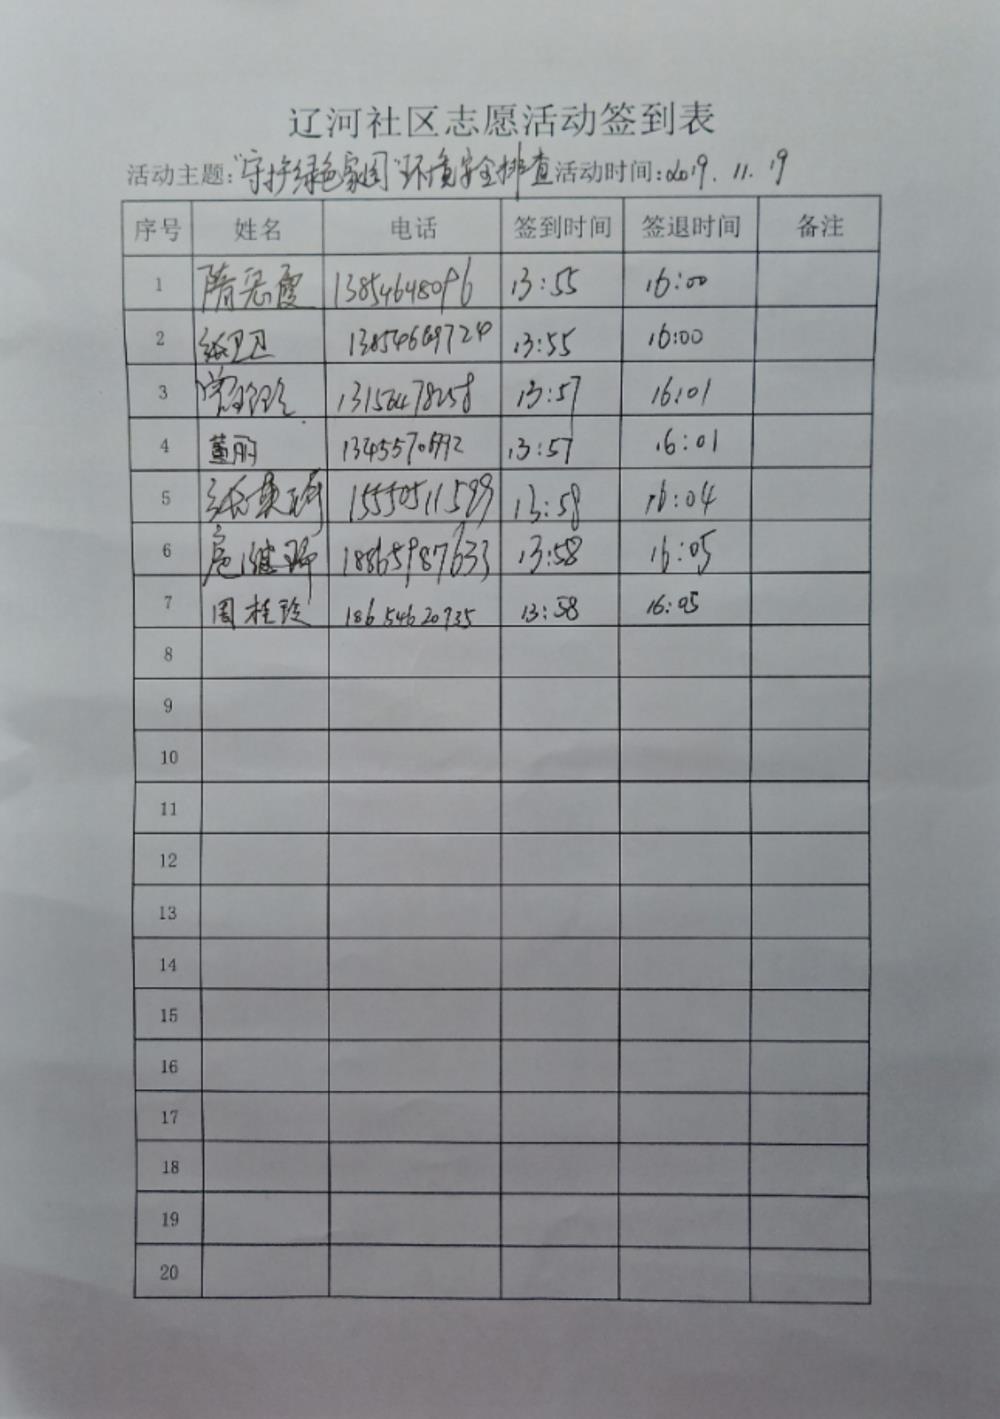 辽河社区志愿活动签到表
活动主题:“守护绿色家园”环境安全排查 活动时间:2019.11.19
序号 姓名 电话 签到时间 签退时间 备注
1 隋忠霞 13854648096 13:55 16:00
2 张卫卫 13:55 16:00
3 13:57 16:01
4 董丽 13:57 16:01
5 15550511599 13:58 16:04
6 18865987633 13:58 16:05
7 周桂玲 18654620935 13:58 16:05
8
9
10
11
12
13
14
15
16
17
18
19
20